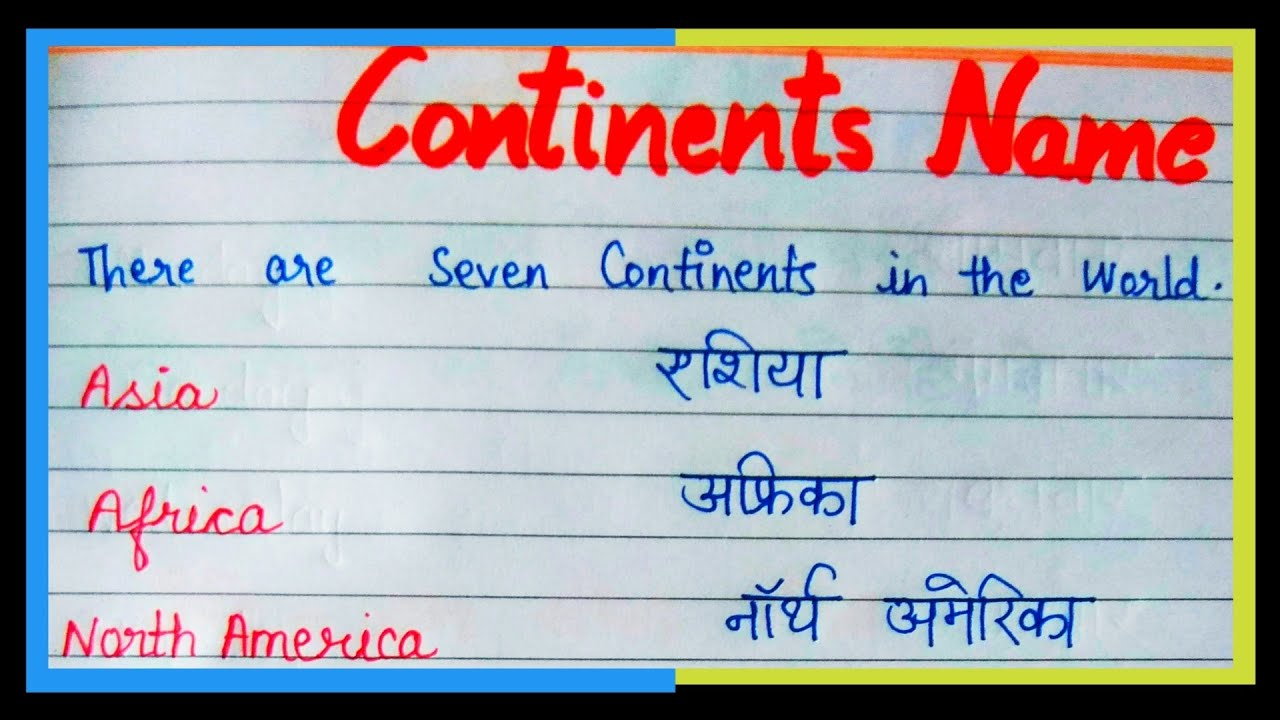 Continents Name
There are Seven Continents in the World.
Asia एशिया
Africa अफ्रिका
North America नॉर्थ अमेरिका